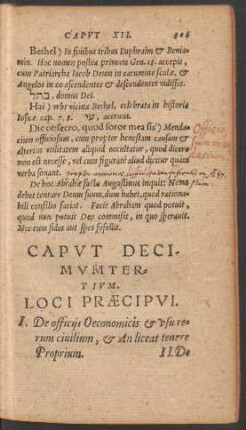 CAPVT XII.
Bethel) In finibus tribus Ephraim & Beniamin. Hoc nomen postea primum Gen.28. accepit,
cum Patriarcha Iacob Deum in cacumine scalæ, &
Angelos in ea ascendentes & descendentes vidisset.
domus Dei.
Hai) vrbs vicina Bethel, celebrata in historia
Iosuæ cap. 7. 8. acervus.
Dic obsecro, quod soror mea sis) Mendacium officiosum, cum propter honestam causam &
alterius vtilitatem aliquid occultatur, quod dicere
non est necesse, vel cum figuratè aliud dicitur quàm
verba sonant.
De hoc Abrahæ facto Augustinus inquit: Nemo
debet tentare Deum suum, dum habet, quod rationabili consilio faciat. Fecit Abraham quod potuit,
quod non potuit Deo commisit, in quo speravit.
Nec eum fides aut spes fefellit.
CAPVT DECI-
MVMTER-
TIVM.
LOCI PRÆCIPVI.
I. De officijs Oeconomicis & vsu re-
rum civilium, & An liceat tenere
Proprium. II. De